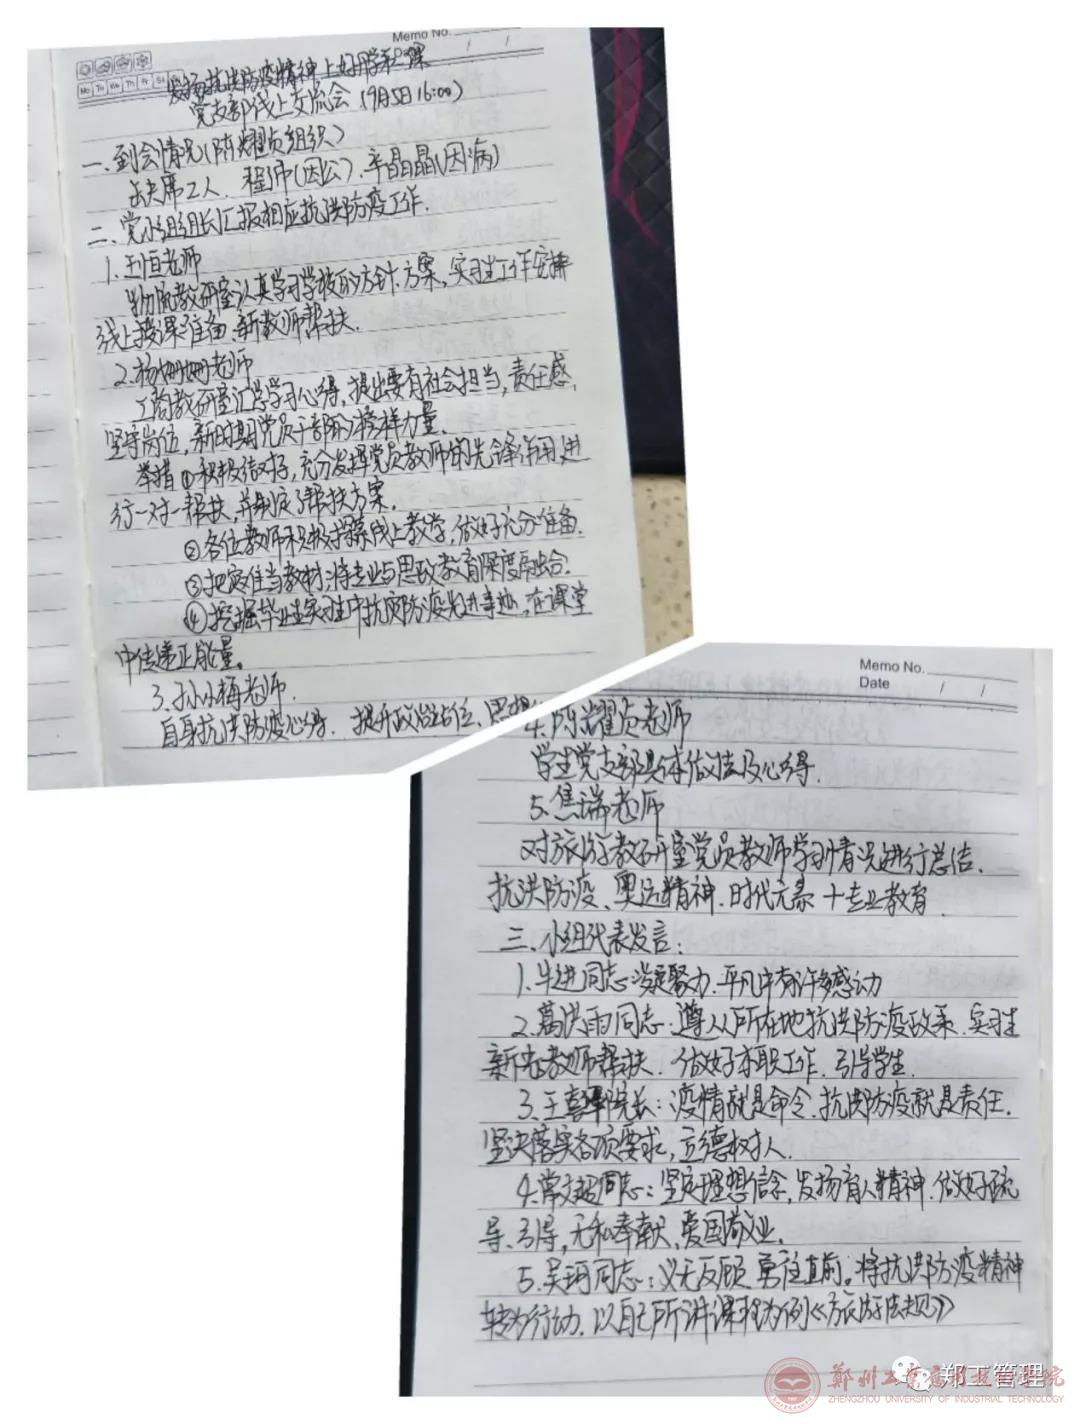 Memo No.
Mo Tu We Th Fr Sa Su
发扬抗洪防疫精神上好开学第一课
党支部线上交流会（9月5日16:00）
一、到会情况（陈耀贞组织）
缺席2人. 程师（因公）、辛晶晶（因病）
二、党小组组长汇报相应抗洪防疫工作.
1. 王恒老师
物流教研室认真学习学校的方针、方案，实习生工作安排
线上授课准备、新教师帮扶.
2. 杨姗姗老师
工商教研室汇总学习心得，提出要有社会担当，责任感，
坚守岗位，新时期党员干部的榜样力量.
举措 ①积极结对子，充分发挥党员教师的先锋作用，进
行一对一帮扶，并制定了帮扶方案.
②各位教师积极探索线上教学，做好充分准备.
③把灾难当教材，将专业与思政教育深度融合.
④挖掘毕业生实习生中抗洪防疫先进事迹，在课堂
中传递正能量。
3. 孙小梅老师.
自身抗洪防疫心得. 提升政治站位、思想
Memo No.
Date / /
4. 陈耀贞老师
学生党支部具体做法及心得.
5. 焦瑞老师
对旅游教研室党员教师学习情况进行总结.
抗洪防疫、奥运精神、时代元素 + 专业教育
三、小组代表发言:
1. 牛进同志: 凝聚力. 平凡中有许多感动
2. 葛洪雨同志: 遵从所在地抗洪防疫政策. 实习生
新老教师帮扶. 做好本职工作. 引导学生.
3. 王喜 院长: 疫情就是命令，抗洪防疫就是责任.
坚决落实各项要求，立德树人.
4. 常文超同志: 坚定理想信念，发扬育人精神. 做好疏
导、引导，无私奉献，爱国敬业.
5. 吴珂同志: 义无反顾 勇往直前。将抗洪防疫精神
转为行动. 以自己所讲课程为例《旅游法规》
郑工管理
郑州工业应用技术学院
ZHENGZHOU UNIVERSITY OF INDUSTRIAL TECHNOLOGY